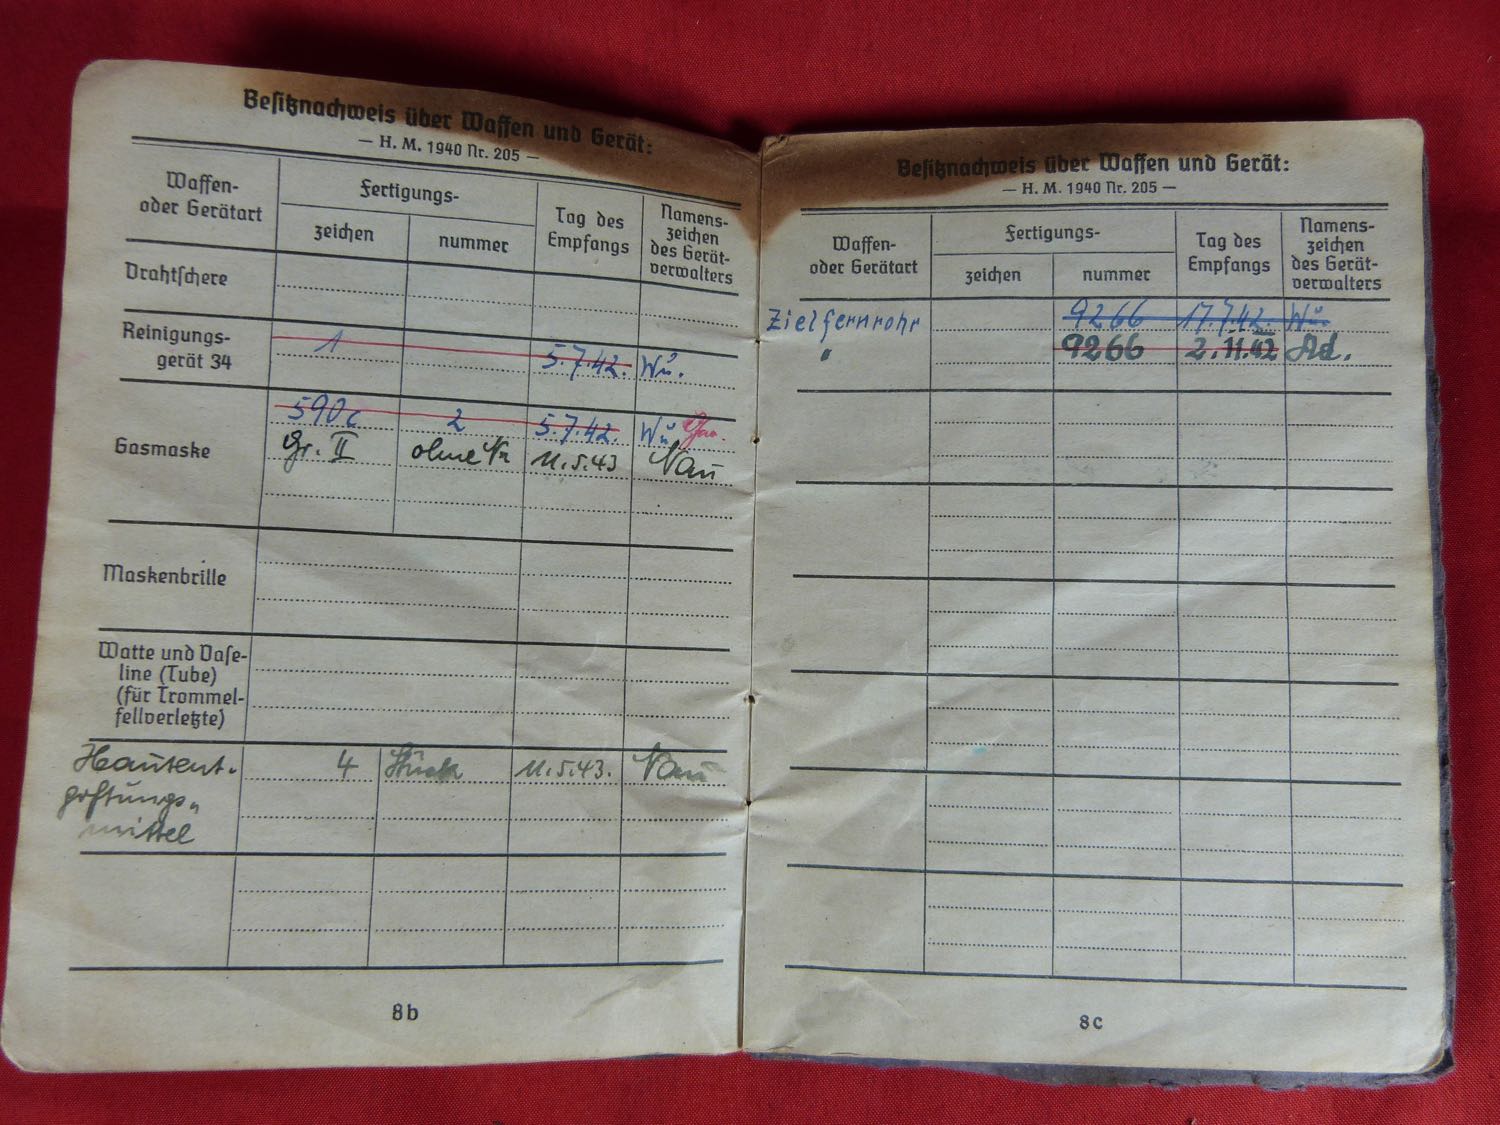 Besitznachweis über Waffen und Gerät:
— H. M. 1940 Nr. 205 —
Waffen-
oder Gerätart
Fertigungs-
zeichen
nummer
Tag des
Empfangs
Namens-
zeichen
des Gerät-
verwalters
Drahtschere
Reinigungs-
gerät 34
1 5.7.42. Wü.
Gasmaske
590c 2 5.7.42. Wü
Gr. II ohne Nr 11.5.43 Nau
Maskenbrille
Watte und Vase-
line (Tube)
(für Trommel-
fellverletzte)
Hautent- 4 Stück 11.5.43. Nau
giftungs-
mittel
8b
Besitznachweis über Waffen und Gerät:
— H. M. 1940 Nr. 205 —
Waffen-
oder Gerätart
Fertigungs-
zeichen
nummer
Tag des
Empfangs
Namens-
zeichen
des Gerät-
verwalters
Zielfernrohr 9266 17.7.42. Wü.
" 9266 2.11.42 Ad.
8c